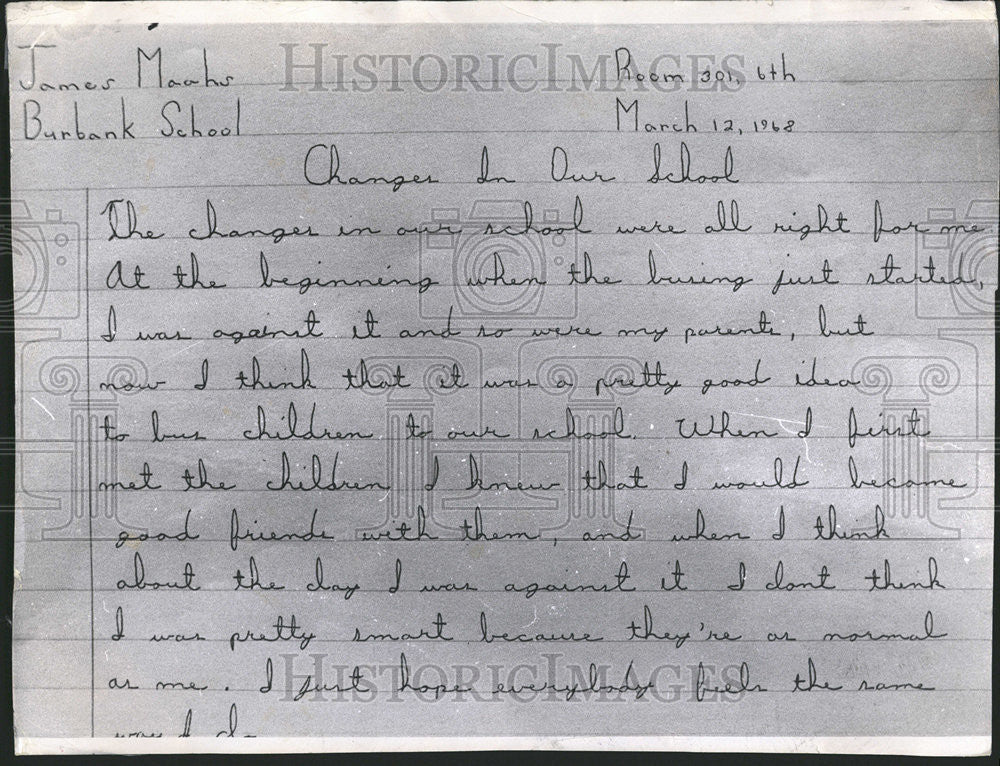 James Maahs Room 301, 6th
Burbank School March 12, 1968
Changes In Our School
The changes in our school were all right for me.
At the beginning when the busing just started,
I was against it and so were my parents, but
now I think that it was a pretty good idea
to bus children to our school. When I first
met the children I knew that I would become
good friends with them, and when I think
about the day I was against it I dont think
I was pretty smart because they're as normal
as me. I just hope everybody feels the same
way I do
HISTORICIMAGES
HISTORICIMAGES